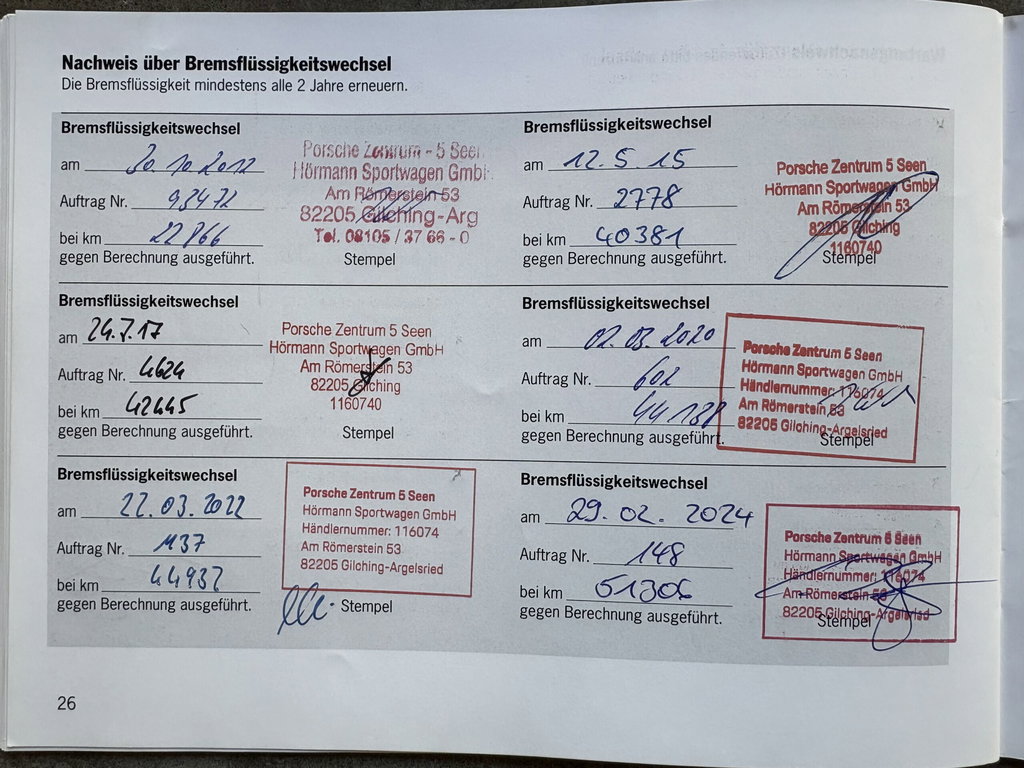 Nachweis über Bremsflüssigkeitswechsel
Die Bremsflüssigkeit mindestens alle 2 Jahre erneuern.
Bremsflüssigkeitswechsel
am 30.10.2012
Auftrag Nr. 93472
bei km 22866
gegen Berechnung ausgeführt.
Porsche Zentrum - 5 Seen
Hörmann Sportwagen GmbH
Am Römerstein 53
82205 Gilching-Arg
Tel. 08105 / 37 66 - 0
Stempel
Bremsflüssigkeitswechsel
am 12.5 15
Auftrag Nr. 2778
bei km 40381
gegen Berechnung ausgeführt.
Porsche Zentrum 5 Seen
Hörmann Sportwagen GmbH
Am Römerstein 53
82205 Gilching
1160740
Stempel
Bremsflüssigkeitswechsel
am 24.7.17
Auftrag Nr. 4624
bei km 42445
gegen Berechnung ausgeführt.
Porsche Zentrum 5 Seen
Hörmann Sportwagen GmbH
Am Römerstein 53
82205 Gilching
1160740
Stempel
Bremsflüssigkeitswechsel
am 02.03.2020
Auftrag Nr. 602
bei km 44138
gegen Berechnung ausgeführt.
Porsche Zentrum 5 Seen
Hörmann Sportwagen GmbH
Händlernummer: 116074
Am Römerstein 53
82205 Gilching-Argelsried
Stempel
Bremsflüssigkeitswechsel
am 22.03.2022
Auftrag Nr. 1137
bei km 44937
gegen Berechnung ausgeführt.
Porsche Zentrum 5 Seen
Hörmann Sportwagen GmbH
Händlernummer: 116074
Am Römerstein 53
82205 Gilching-Argelsried
Stempel
Bremsflüssigkeitswechsel
am 29.02.2024
Auftrag Nr. 148
bei km 51306
gegen Berechnung ausgeführt.
Porsche Zentrum 5 Seen
Hörmann Sportwagen GmbH
Händlernummer: 116074
Am Römerstein 53
82205 Gilching-Argelsried
Stempel
26